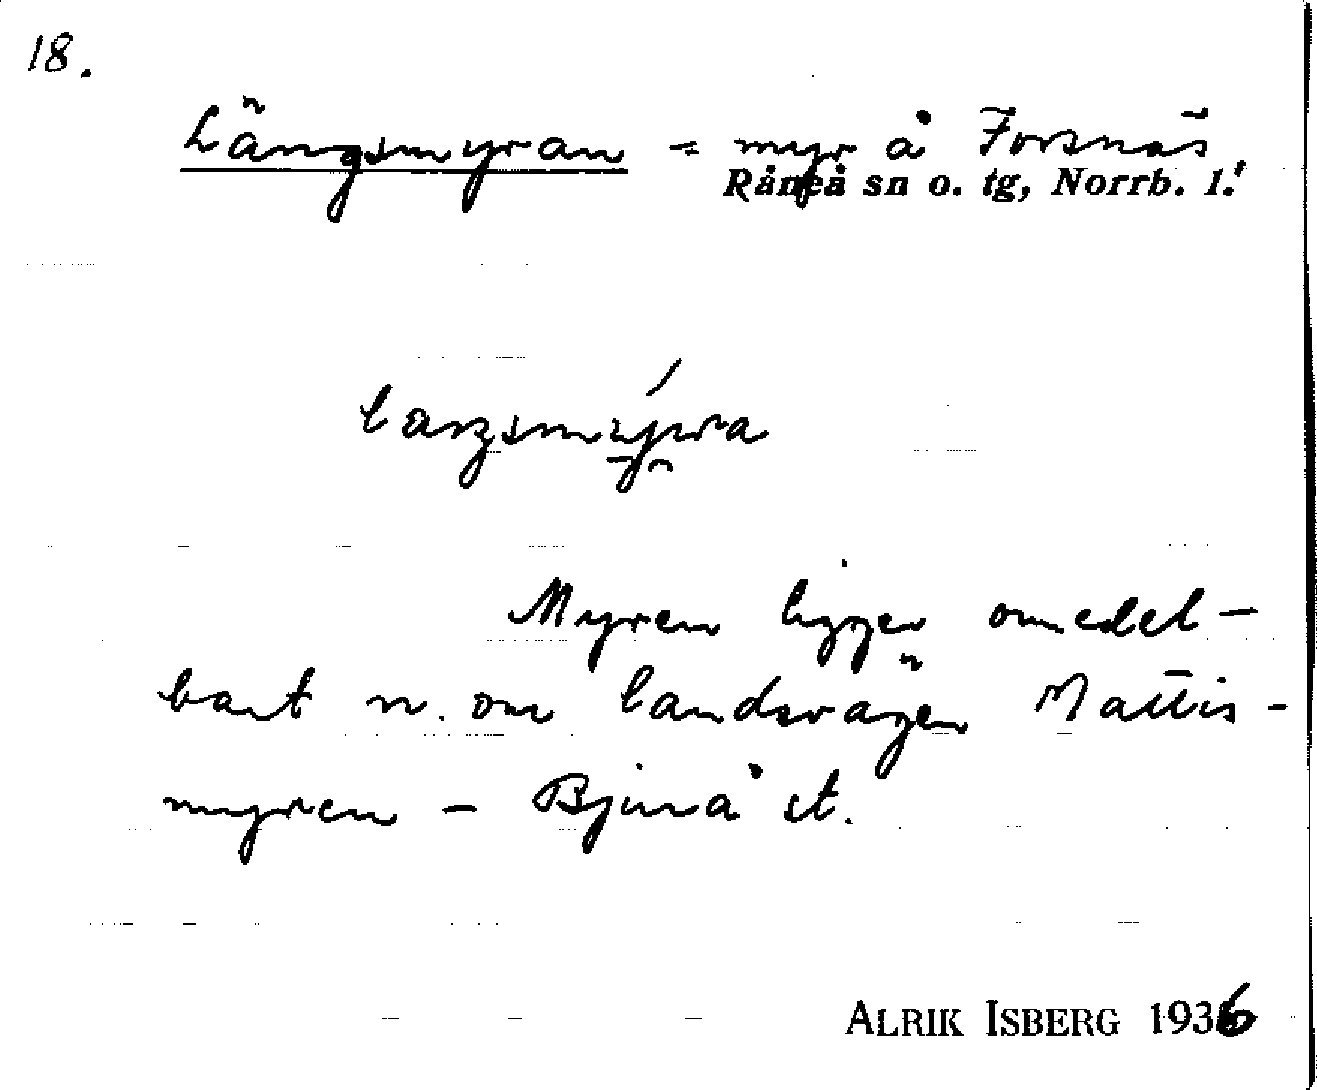 18.
Längsmyran = myr å Forsnäs
Råneå sn o. tg, Norrb. l.
Myren ligger omedel-
bart n. om landsvägen Mattis-
myren - Bjurå st.
ALRIK ISBERG 1936